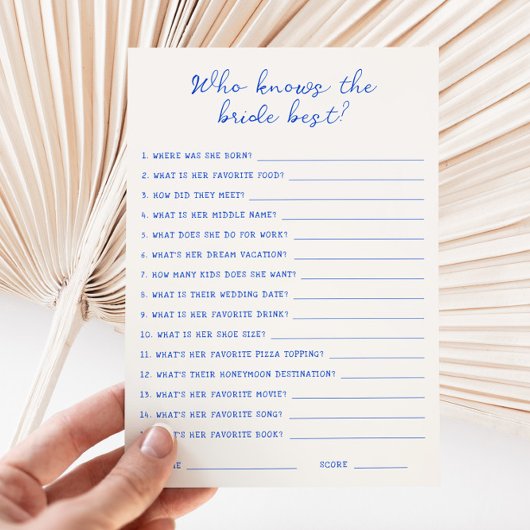 Who knows the
bride best?
1. WHERE WAS SHE BORN?
2. WHAT IS HER FAVORITE FOOD?
3. HOW DID THEY MEET?
4. WHAT IS HER MIDDLE NAME?
5. WHAT DOES SHE DO FOR WORK?
6. WHAT'S HER DREAM VACATION?
7. HOW MANY KIDS DOES SHE WANT?
8. WHAT IS THEIR WEDDING DATE?
9. WHAT IS HER FAVORITE DRINK?
10. WHAT IS HER SHOE SIZE?
11. WHAT'S HER FAVORITE PIZZA TOPPING?
12. WHAT'S THEIR HONEYMOON DESTINATION?
13. WHAT'S HER FAVORITE MOVIE?
14. WHAT'S HER FAVORITE SONG?
WHAT'S HER FAVORITE BOOK?
SCORE